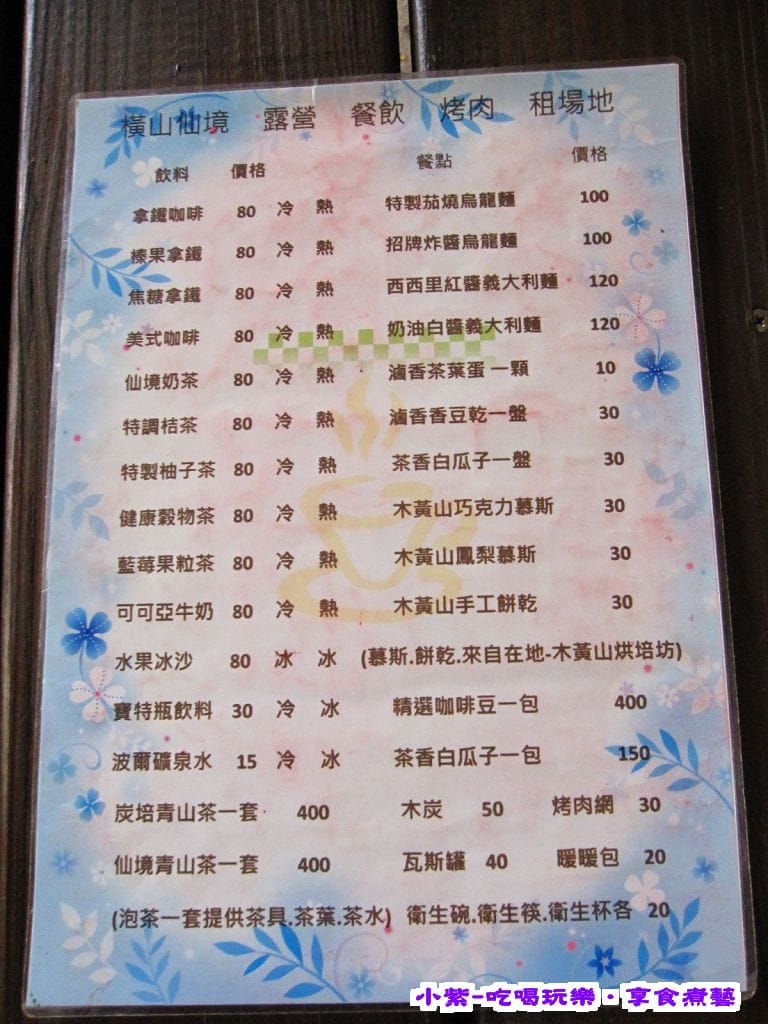 橫山仙境 露營 餐飲 烤肉 租場地
飲料 價格 餐點 價格
拿鐵咖啡 80 冷 熱 特製茄燒烏龍麵 100
榛果拿鐵 80 冷 熱 招牌炸醬烏龍麵 100
焦糖拿鐵 80 冷 熱 西西里紅醬義大利麵 120
美式咖啡 80 冷 熱 奶油白醬義大利麵 120
仙境奶茶 80 冷 熱 滷香茶葉蛋 一顆 10
特調桔茶 80 冷 熱 滷香香豆乾一盤 30
特製柚子茶 80 冷 熱 茶香白瓜子一盤 30
健康穀物茶 80 冷 熱 木黃山巧克力慕斯 30
藍莓果粒茶 80 冷 熱 木黃山鳳梨慕斯 30
可可亞牛奶 80 冷 熱 木黃山手工餅乾 30
水果冰沙 80 冰 冰 (慕斯.餅乾.來自在地-木黃山烘培坊)
寶特瓶飲料 30 冷 冰 精選咖啡豆一包 400
波爾礦泉水 15 冷 冰 茶香白瓜子一包 150
炭培青山茶一套 400 木炭 50 烤肉網 30
仙境青山茶一套 400 瓦斯罐 40 暖暖包 20
(泡茶一套提供茶具.茶葉.茶水) 衛生碗.衛生筷.衛生杯各 20
小紫-吃喝玩樂・享食煮藝